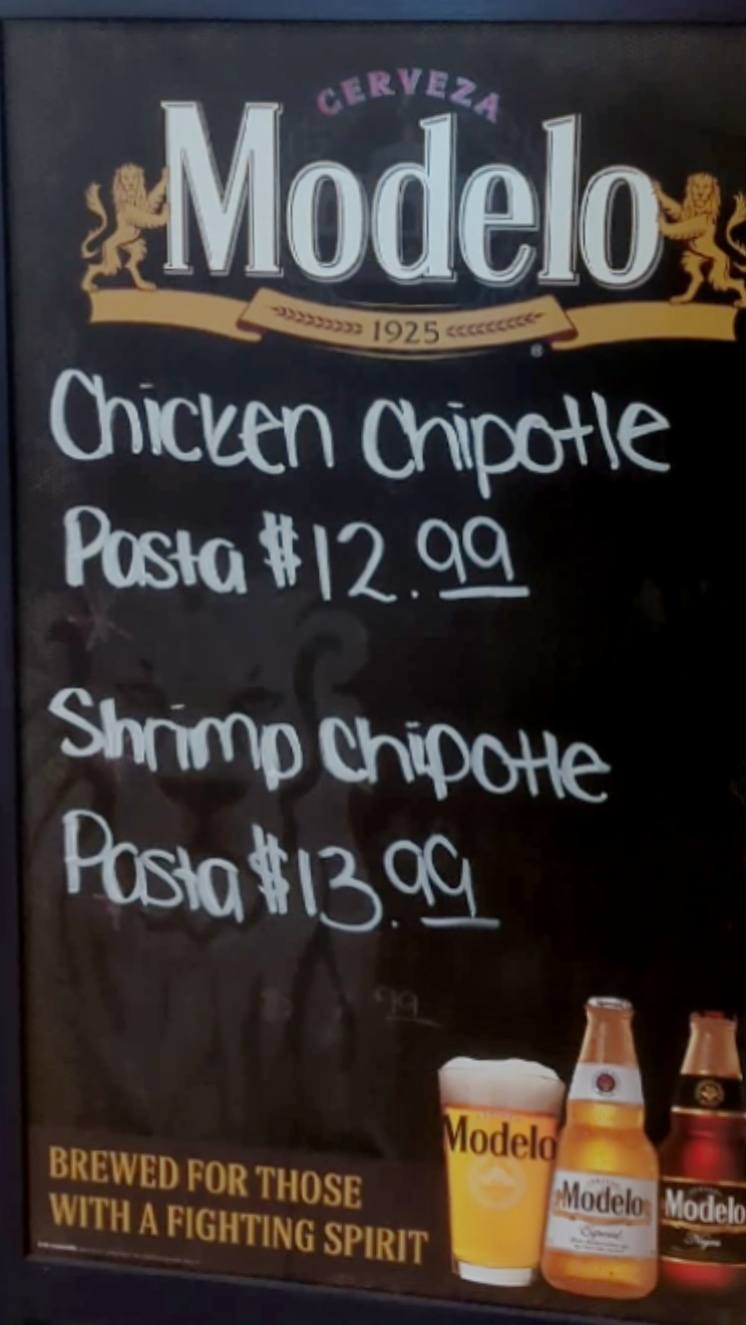 CERVEZA
Modelo
1925
Chicken Chipotle
Pasta $12.99
Shrimp Chipotle
Pasta $13.99
99
BREWED FOR THOSE
WITH A FIGHTING SPIRIT
Modelo
Modelo
Especial
Modelo
Negra